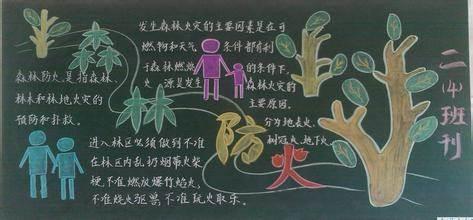 发生森林火灾的主要因素是在可
燃物和天气条件都有利
于森林燃烧的条件下,
火源是发生森林火灾的
主要原因。
分为地表火、
树冠火、地下火。
森林防火是指森林、
林木和林地火灾的
预防和扑救。
森林
防火
进入林区必须做到不准
在林区内乱扔烟蒂火柴
梗,不准燃放爆竹焰火,
不准烧火驱兽,不准玩火取乐。
二(4)班刊